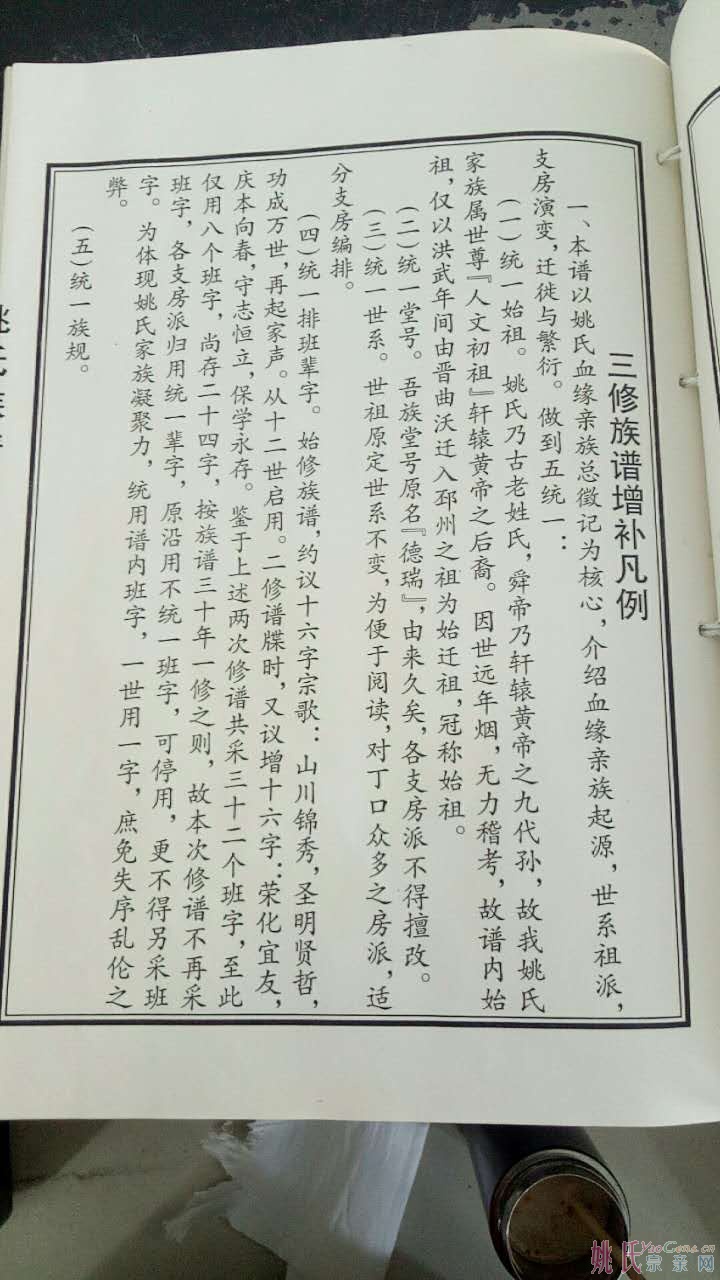 三修族谱增补凡例
一、本谱以姚氏血缘亲族总徵记为核心，介绍血缘亲族起源，世系祖派，
支房演变，迁徙与繁衍。做到五统一：
（一）统一始祖。姚氏乃古老姓氏，舜帝乃轩辕黄帝之九代孙，故我姚氏
家族属世尊『人文初祖』轩辕黄帝之后裔。因世远年烟，无力稽考，故谱内始
祖，仅以洪武年间由晋曲沃迁入邳州之祖为始迁祖，冠称始祖。
（二）统一堂号。吾族堂号原名『德瑞』，由来久矣，各支房派不得擅改。
（三）统一世系。世祖原定世系不变，为便于阅读，对丁口众多之房派，适
分支房编排。
（四）统一排班辈字。始修族谱，约议十六字宗歌：山川锦秀，圣明贤哲，
功成万世，再起家声。从十二世启用。二修谱牒时，又议增十六字：荣化宜友，
庆本向春，守志恒立，保学永存。鉴于上述两次修谱共采三十二个班字，至此
仅用八个班字，尚存二十四字，按族谱三十年一修之则，故本次修谱不再采
班字，各支房派归用统一辈字，原沿用不统一班字，可停用，更不得另采班
字。为体现姚氏家族凝聚力，统用谱内班字，一世用一字，庶免失序乱伦之
弊。
（五）统一族规。
姚氏宗亲网
YaoGens.cn